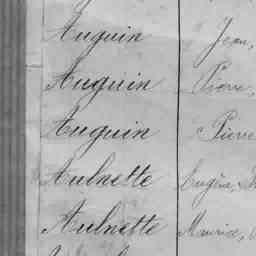 Auguin Jean,
Auguin Pierre,
Auguin Pierre
Aulnette Eugène,
Aulnette Maurice,